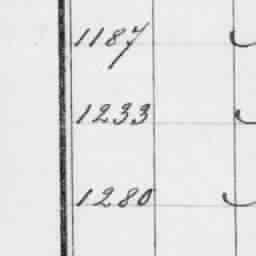 1187
1233
1280